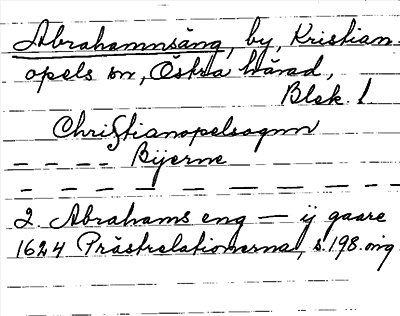 Abrahamnsäng, by, Kristian-
opels sn, Östra härad,
Blek. l
Christianopelsognn
– – – – Bÿerne
– – – – – – – – – –
2. Abrahams eng — ij gaare
1624 Prästrelationerna, s. 198. orig.